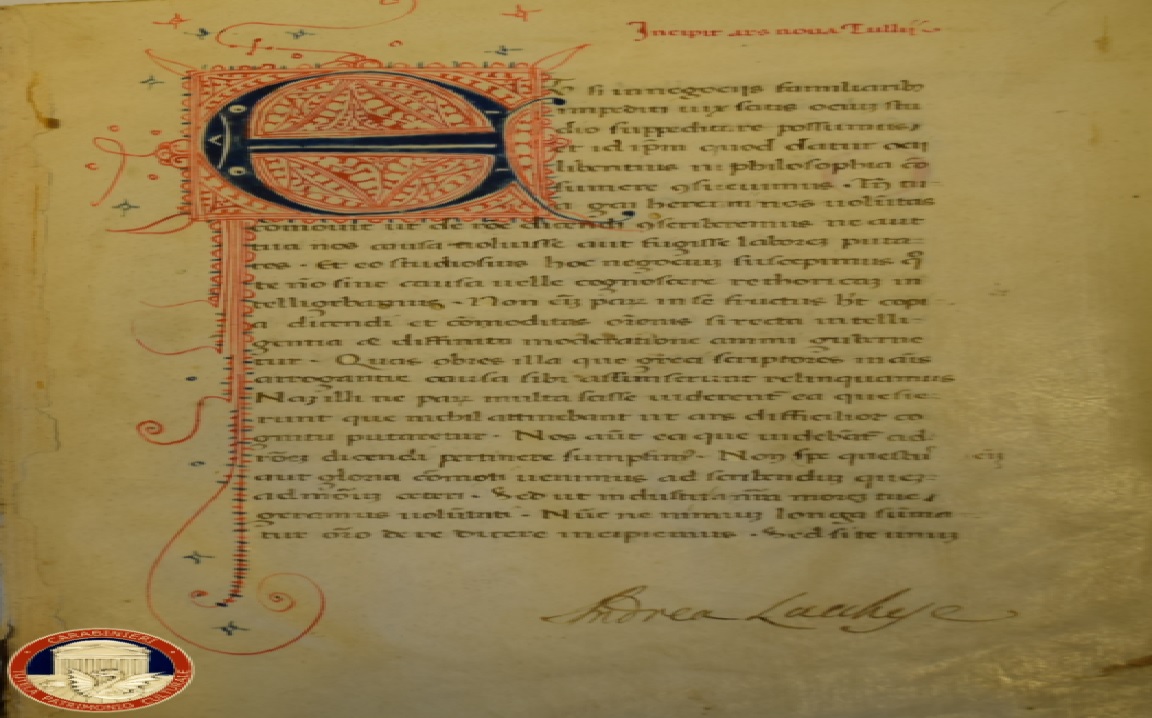 Incipit ars noua Tullij
Et si in negocijs familiaribꝫ
impediti uix satis ociuꝫ stu
dio suppeditare possumus
et id ip̄m quod datur ocij
libentius in philosophia cō
sumere ꝯsueuimus. Tn̄ tu
a gai herēni nos uolūtas
cōmouit ut de rōe dicendi ꝯscriberemus ne aut
tua nos causa noluisse aut fugisse laboreꝫ puta
res. Et eo studiosius hoc negociuꝫ suscepimus qꝫ
te nō sine causa uelle cognoscere rethoricaꝫ in
telligebamus. Non eīꝫ paꝝ in se fructus hꝫt copi
a dicendi et cōmoditas or̄onis si recta intelli
gentia et diffinita moderatione animi guberne
tur. Quas obres illa que greci scriptores inanis
arrogantie causa sibi assumserunt relinquamus
Naꝫ illi ne paꝝ multa scisse uiderent̄ ea quesie
runt que nichil attinebant ut ars difficilior co
gnitu putaretur. Nos aūt ea que uidebāt̄ ad
rōeꝫ dicendi pertinere sumpsimꝰ. Non spe questus
aut gloria cōmoti uenimus ad scribenduꝫ queꝫ
admōuꝫ ceteri. Sed ut industria nr̄a moreꝫ tue
geramus uolūtati. Nūc ne nimiuꝫ longa suma
tur or̄o de re dicere incipiemus. Sed si te unuꝫ
Andrea
CARABINIERI
TUTELA PATRIMONIO CULTURALE